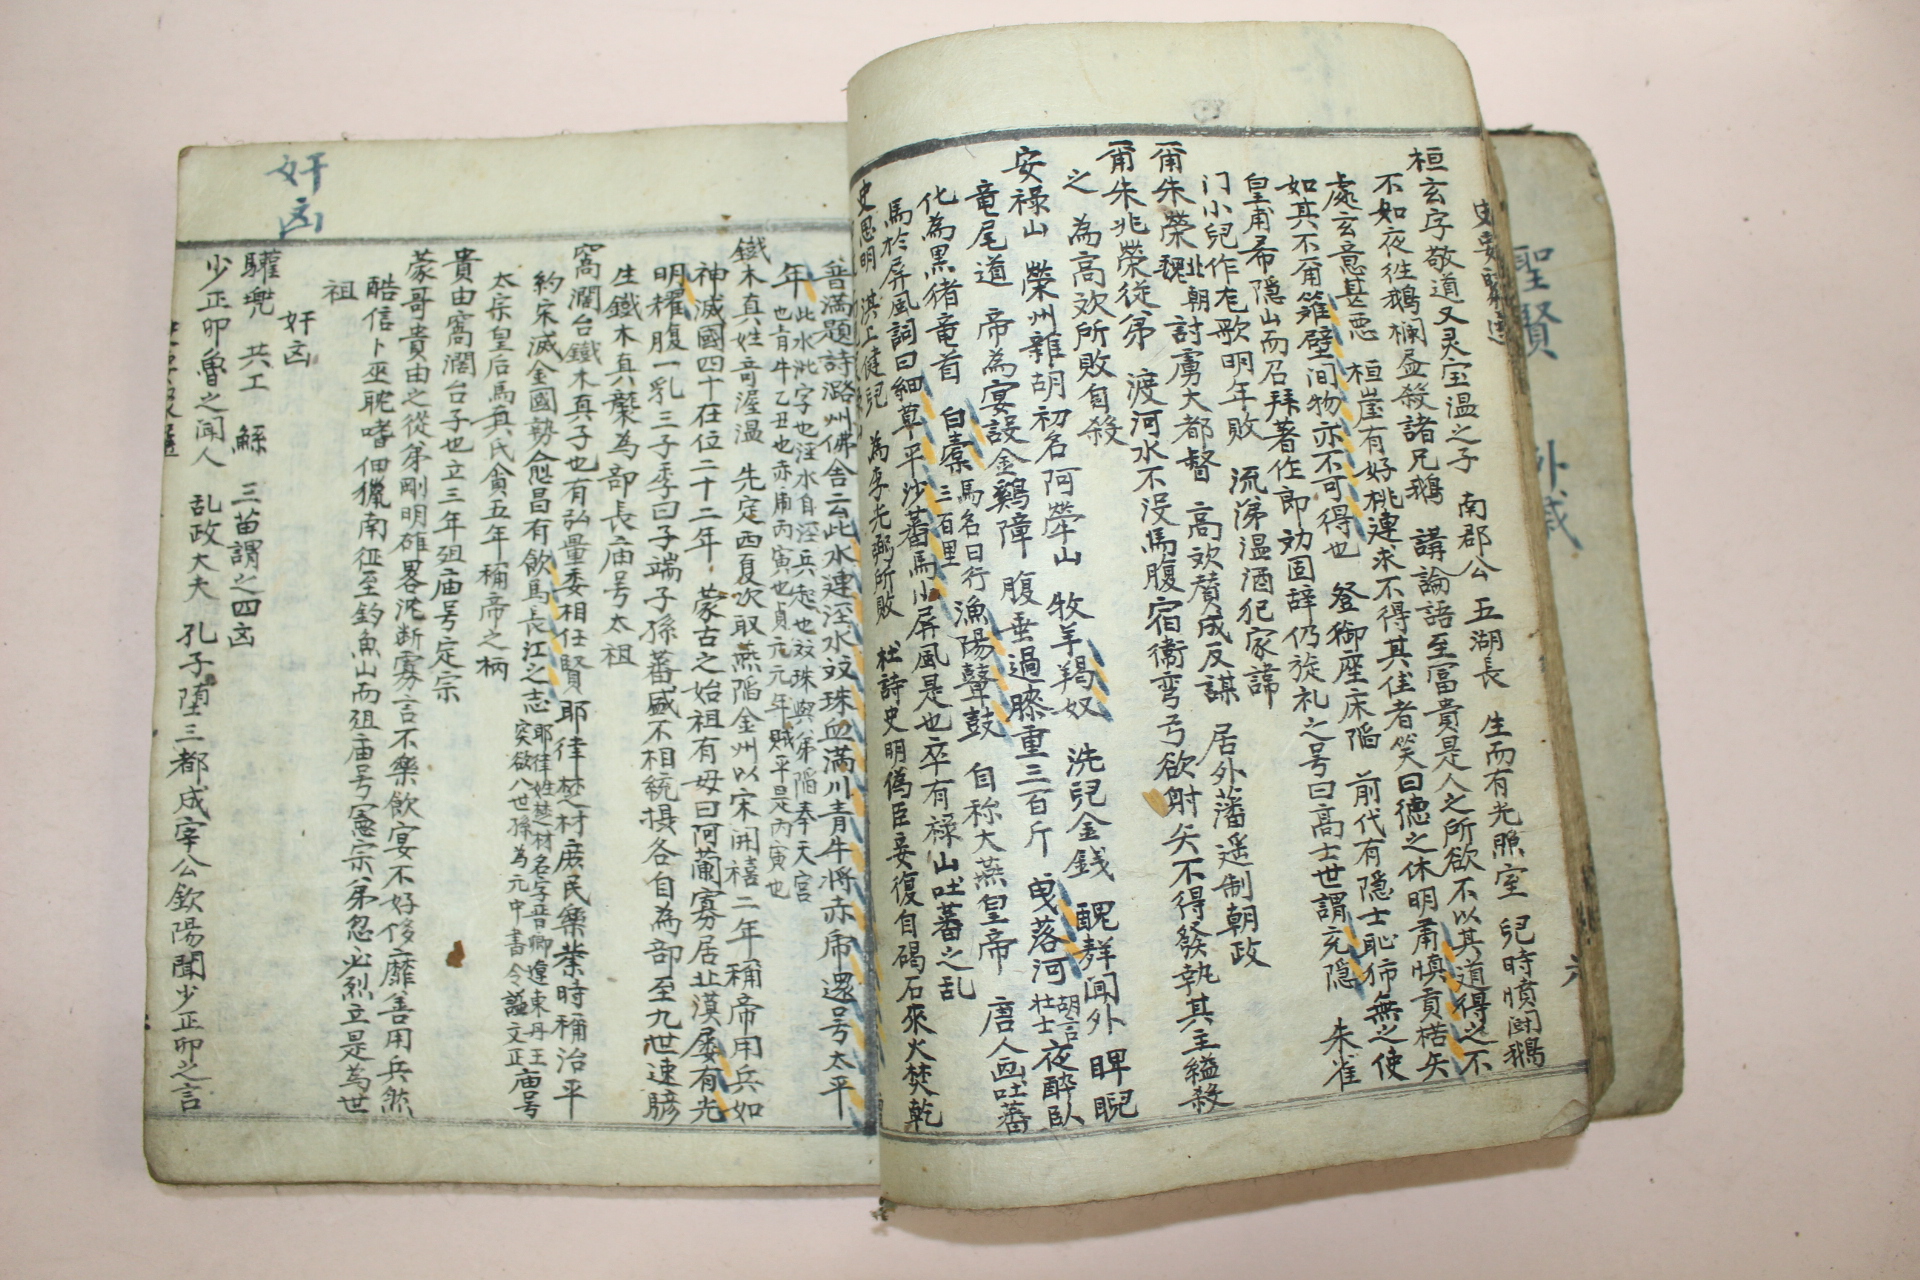 聖賢
外戚
史要聚選
桓玄字敬道又灵宝温之子 南郡公 五湖長 生而有光照室 兒時憤鬪鵝
不如夜徃鵝欄盡殺諸兄鵝 講論語至富貴是人之所欲不以其道得之不
處玄意甚悪 桓崖有好桃連求不得其佳者笑曰德之休明肅愼貢楛矢
如其不甭籬壁间物亦不可得也 登御座床陷 前代有隠士恥帝無之使
皇甫希隠山而召拜著作郎劝固辞仍旋礼之号曰高士世謂充隠 朱雀
门小兒作尨歌明年敗 流涕温酒犯家諱
甭朱荣 北朝魏 討虜大都督 高欢賛成反謀 居外藩遥制朝政
甭朱兆荣從弟 渡河水不没馬腹宿衞弯弓欲射矢不得發執其主縊殺
之 為高欢所敗自殺
安禄山 榮州雜胡初名阿犖山 牧羊羯奴 洗兒金銭 醜羣闻外 睥睨
竜尾道 帝為宴設金鷄障 腹垂過膝重三百斤 曳落河 胡言壮士 夜醉臥
化為黒猪竜首 自槖 三百里 馬名曰行 漁陽鼙鼓 自称大燕皇帝 唐人画吐蕃
馬於屏風詞曰細草平沙蕃馬小屏風是也卒有禄山吐蕃之乱
史思明 淇上健兒 為李光弼所敗 杜詩史明僞臣妾復自碣石來火焚乾
普満題詩潞州佛舍云此水連涇水双珠血満川青牛将赤帍還号太平
年 此水泚字也涇水自涇兵起也双珠與弟滔奉天宮
也肯牛乙丑也赤席丙寅也貞元元年賊平是丙寅也
鐵木真姓奇渥温 先定西夏次取燕陷金州以宋開禧二年稱帝用兵如
神滅國四十在位二十二年 蒙古之始祖有母曰阿蘭寡居北漠屡有光
明耀腹一乳三子季曰子端子孫蕃盛不相統摂各自為部至九世速賖
生鐵木真襲為部長庙号太祖
窩濶台鐵木真子也有弘量委相任賢耶律楚材庻民樂業時稱治平
約宋滅金國勢愈昌有飲馬長江之志 耶律姓楚材名字晋卿遼東丹王
突欲八世孫為元中書令謚文正 庙号
太宗皇后馬真氏食五年稱帝之柄
貴由窩濶台子也立三年殂庙号定宗
蒙哥貴由之從弟剛明雄畧沈断寡言不樂飲宴不好侈靡善用兵然
酷信卜巫耽嗜佃獵南征至釣魚山而殂庙号憲宗弟忽必烈立是為世
祖
奸凶
奸凶
驩兜 共工 鯀 三苗謂之四凶
少正卯魯之聞人 乱政大夫 孔子堕三都成宰公歛陽聞少正卯之言